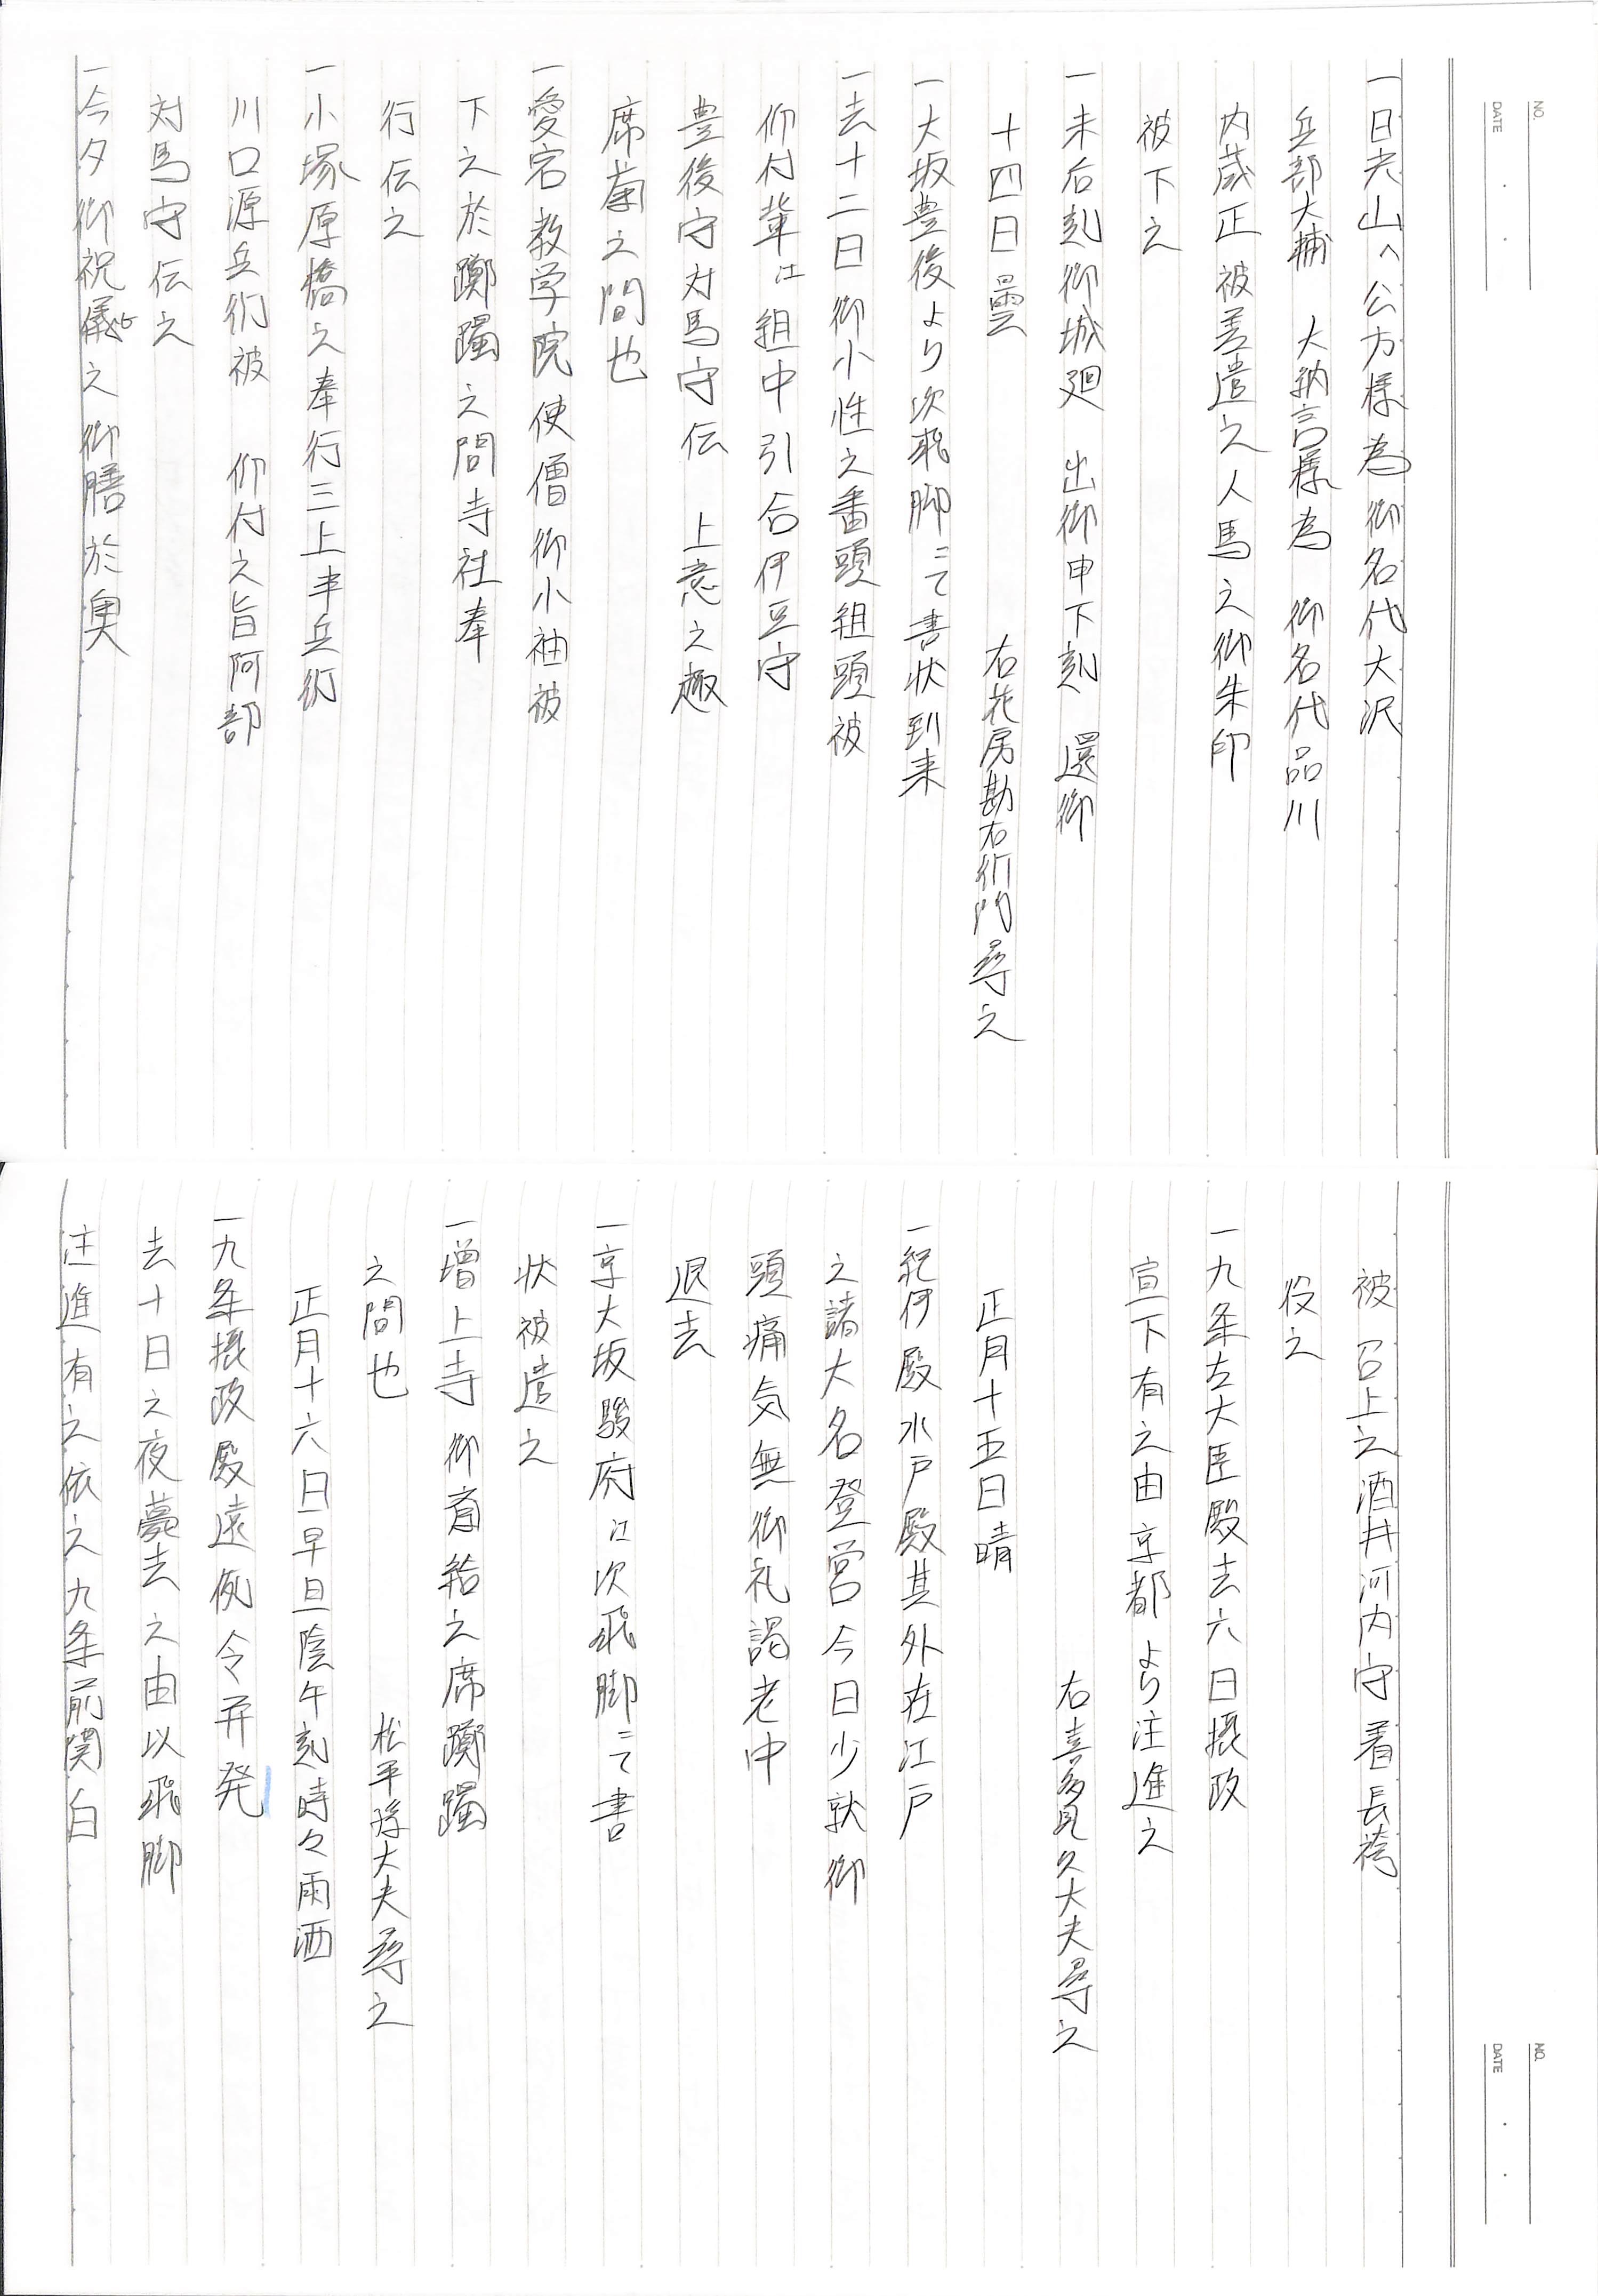 NO.
DATE
一日光山へ公方様為御名代大沢
兵部大輔 大納言様為 御名代品川
内蔵正被差遣之人馬之御朱印
被下之
一未后刻御城廻 出御申下刻 還御
十四日曇 右花房勘右衛門尋之
一大坂豊後より次飛脚ニて書状到来
一去十二日御小性之番頭組頭被
仰付輩江組中引合伊豆守
豊後守対馬守伝 上意之趣
席蘭之間也
一愛宕教学院使僧御小袖被
下之於躑躅之間寺社奉
行伝之
一小塚原橋之奉行三上半兵衛
川口源兵衛被 仰付之旨阿部
対馬守伝之
一今夕御祝儀之御膳於奥
NO.
DATE
被召上之酒井河内守着長袴
役之
一九条左大臣殿去六日摂政
宣下有之由京都より注進之
右喜多見久大夫尋之
正月十五日晴
一紀伊殿水戸殿其外在江戸
之諸大名登営今日少就御
頭痛気無御礼謁老中
退去
一京大坂駿府江次飛脚ニて書
状被遣之
一増上寺御斎給之席躑躅
之間也 松平孫大夫尋之
正月十六日早旦陰午刻時々雨洒
一九条摂政殿遠例令弄発
去十日之夜薨去之由以飛脚
注進有之依之九条前関白